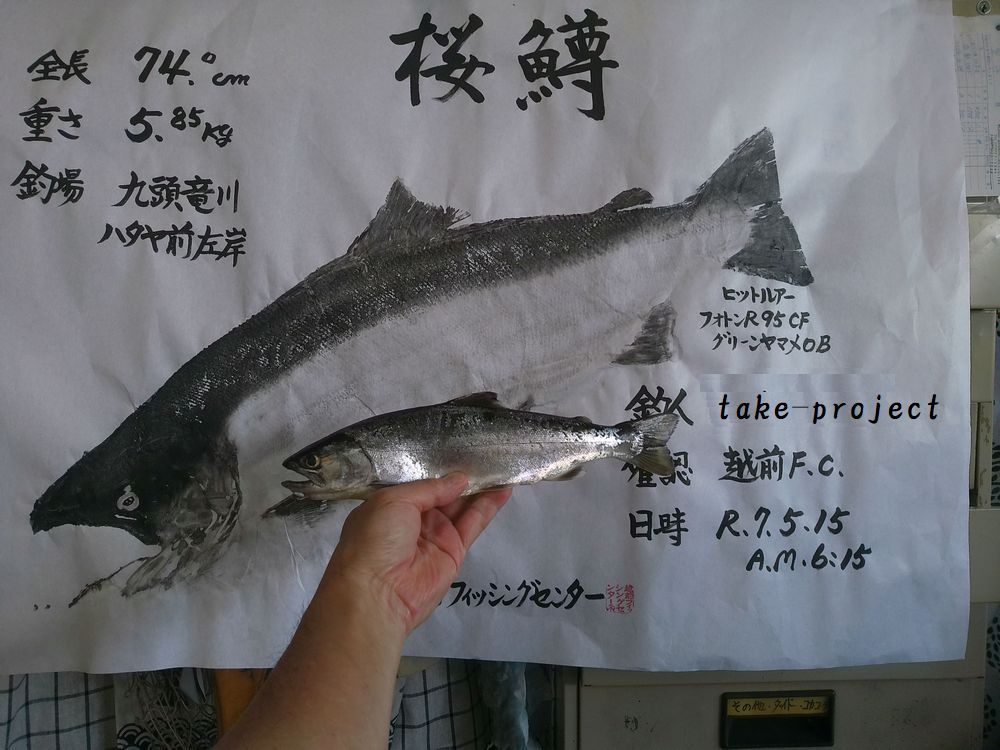 桜鱒
全長 74.0cm
重さ 5.85kg
釣場 九頭竜川
ハタヤ前左岸
ヒットルアー
フォトンR95CF
グリーンヤマメOB
釣人 take-project
確認 越前F.C.
日時 R.7.5.15
A.M.6:15
フィッシングセンター
その他・タイド・